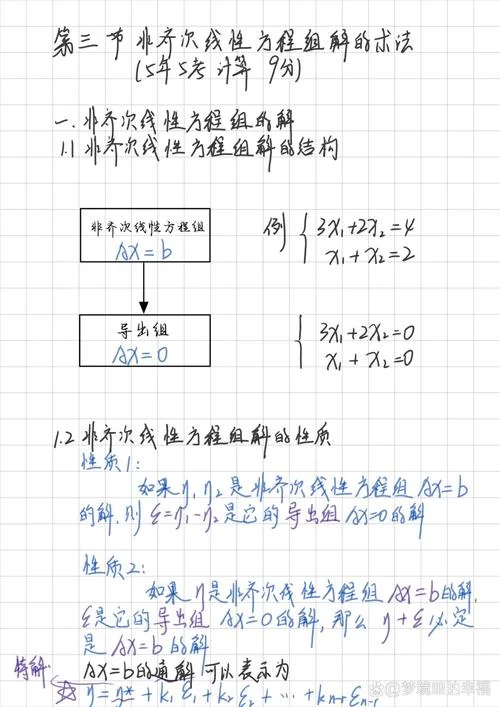 第三节 非齐次线性方程组解的求法
(5年5考 计算 9分)
一. 非齐次线性方程组的解
1.1 非齐次线性方程组解的结构
非齐次线性方程组
AX=b
例 { 3x₁+2x₂=4
x₁+x₂=2
导出组
AX=0
{ 3x₁+2x₂=0
x₁+x₂=0
1.2 非齐次线性方程组解的性质
性质1:
如果η₁ η₂是非齐次线性方程组AX=b
的解,则 ε=η₁-η₂是它的导出组AX=0的解
性质2:
如果η是非齐次线性方程组AX=b的解,
ε是它的导出组AX=0的解,那么η+ε必定
是AX=b的解
特解.
AX=b的通解可以表示为
☆ η=η*+k₁ε₁+k₂ε₂+…+kn-rεn-r
@梦境般的幸福